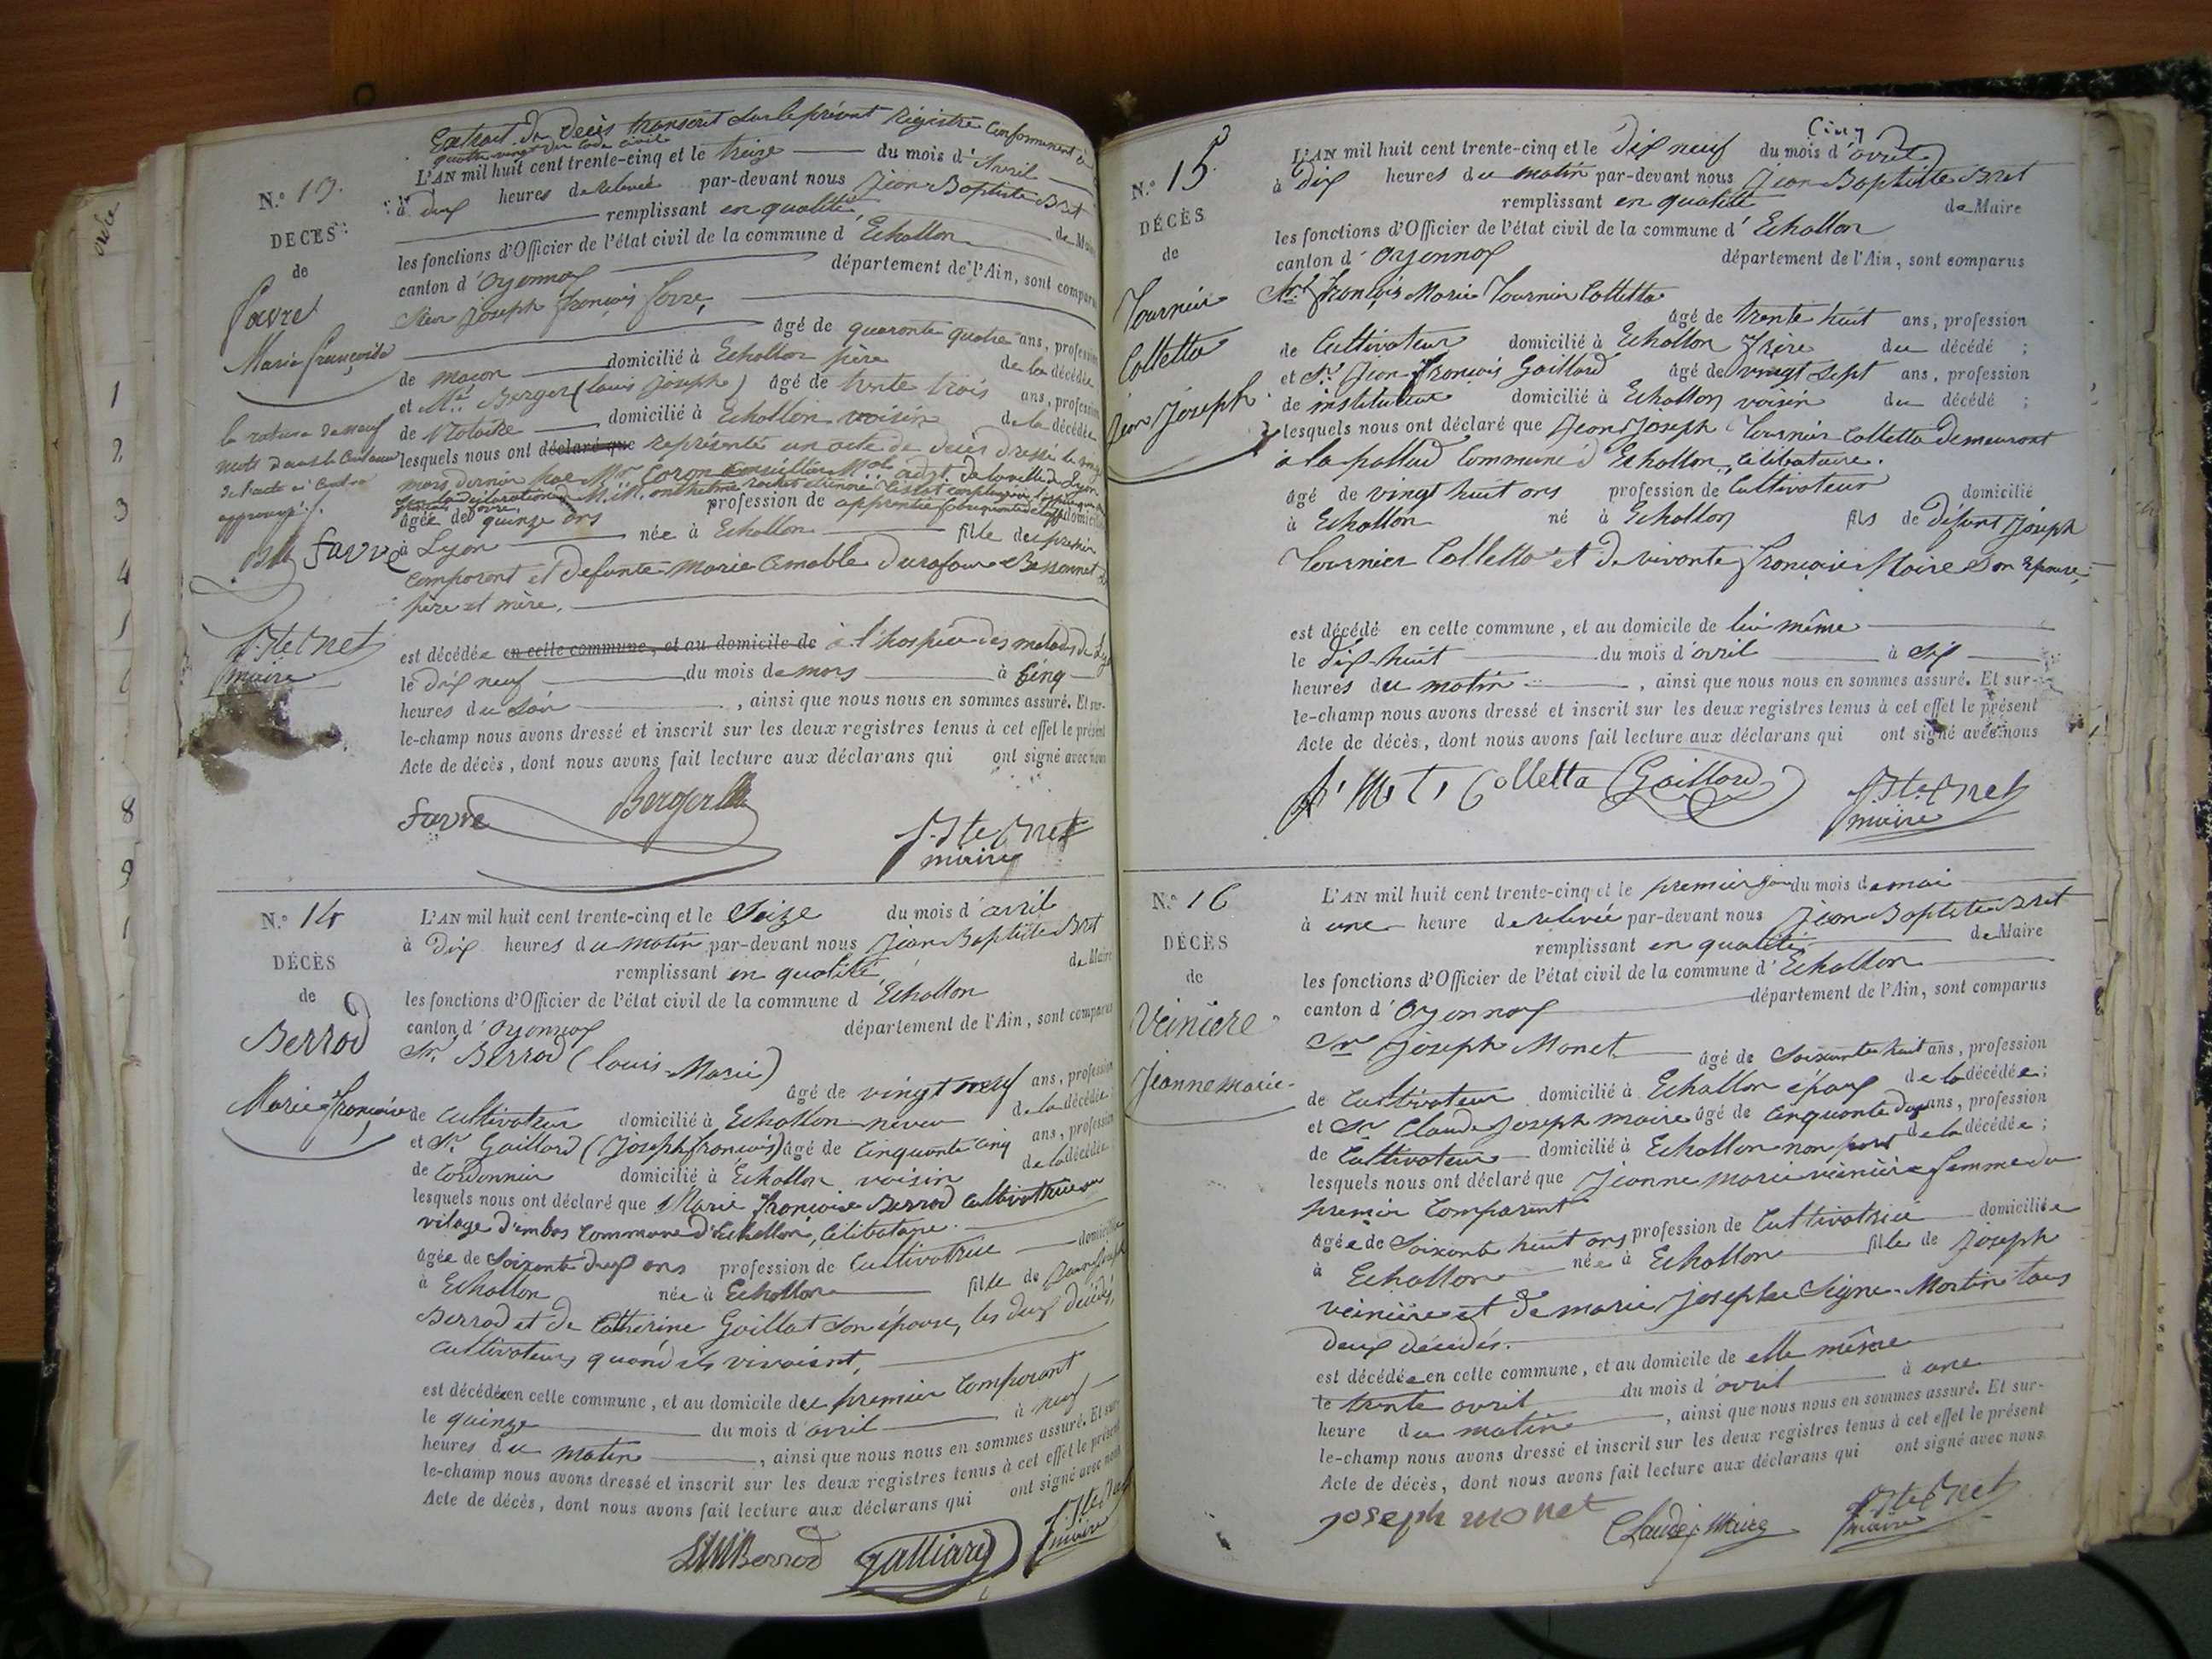 Extrait de décès transcrit sur le présent Régistre Conformément à
quatre vingt du Code civil
N.º 13.
DÉCÈS
de
Favre
Marie françoise
L'AN mil huit cent trente-cinq et le treize du mois d'Avril
à dix heures de relevée par-devant nous Jean Baptiste Bret
remplissant en qualité de Maire
les fonctions d'Officier de l'état civil de la commune d'Echallon
canton d'Oyonnax département de l'Ain, sont comparus
Sieur Joseph françois favre,
âgé de quarante quatre ans, profession
de maçon domicilié à Echallon père de la décédée
et Mr. Berger (Louis Joseph) âgé de trente trois ans, profession
de Notaire domicilié à Echallon voisin de la décédée
lesquels nous ont déclaré que représenté un acte de décès dressé le vingt
mars dernier par Mr Coron adjt. de la ville de Lyon
âgée de quinze ans profession de apprentie domiciliée
à Lyon née à Echallon fille du premier
Comparant et défunte marie Aimable Durafour Bessonnet
père et mère.
est décédée en cette commune, et au domicile de à l'hospice des malades de
le dix neuf du mois de mars à Cinq
heures du soir, ainsi que nous nous en sommes assuré. Et sur-
le-champ nous avons dressé et inscrit sur les deux registres tenus à cet effet le présent
Acte de décès, dont nous avons fait lecture aux déclarans qui ont signé avec nous
la rature de neuf
mots dans le
de l'acte
approuvé
favre
J. Bte Bret
maire
favre Berger
J. Bte Bret
maire
N.º 14
DÉCÈS
de
Berrod
Marie françoise
L'AN mil huit cent trente-cinq et le Seize du mois d'avril
à Dix heures du matin par-devant nous Jean Baptiste Bret
remplissant en qualité de Maire
les fonctions d'Officier de l'état civil de la commune d Echallon
canton d'Oyonnax département de l'Ain, sont comparus
Sr. Berrod (Louis Marie)
âgé de vingt neuf ans, profession
de cultivateur domicilié à Echallon neveu de la décédée
et Sr Gaillard (Joseph françois) âgé de cinquante cinq ans, profession
de Cordonnier domicilié à Echallon voisin de la décédée
lesquels nous ont déclaré que Marie françoise Berrod cultivatrice au
vilage d'embas Commune d'Echallon, Célibataire.
âgée de Soixante deux ans profession de Cultivatrice domiciliée
à Echallon née à Echallon fille de
Berrod et de Catherine Gaillat son épouse, les deux décédés,
cultivateurs quand ils vivaient,
est décédée en cette commune, et au domicile du premier Comparant
le quinze du mois d'avril à neuf
heures du matin, ainsi que nous nous en sommes assuré. Et sur-
le-champ nous avons dressé et inscrit sur les deux registres tenus à cet effet le présent
Acte de décès, dont nous avons fait lecture aux déclarans qui ont signé avec nous
LM Berrod Galliard
J. Bte Bret
maire
N.º 15
DÉCÈS
de
Tournier
Colletta
Jean Joseph
Cinq
L'AN mil huit cent trente-cinq et le Dix neuf du mois d'avril
à Dix heures du matin par-devant nous Jean Baptiste Bret
remplissant en qualité de Maire
les fonctions d'Officier de l'état civil de la commune d'Echallon
canton d'Oyonnax département de l'Ain, sont comparus
Sr. françois Marie Tournier Colletta
âgé de trente huit ans, profession
de Cultivateur domicilié à Echallon frère du décédé;
et Sr. Jean françois Gaillard âgé de vingt sept ans, profession
de instituteur domicilié à Echallon voisin du décédé;
lesquels nous ont déclaré que Jean Joseph Tournier Colletta demeurant
à la pallud Commune d'Echallon, Célibataire.
âgé de vingt huit ans profession de Cultivateur domicilié
à Echallon né à Echallon fils de défunt Joseph
Tournier Colletta et de vivante françoise Maire son Epouse,
est décédé en cette commune, et au domicile de lui même
le dix huit du mois d'avril à six
heures du matin, ainsi que nous nous en sommes assuré. Et sur-
le-champ nous avons dressé et inscrit sur les deux registres tenus à cet effet le présent
Acte de décès, dont nous avons fait lecture aux déclarans qui ont signé avec nous
f. M. T. Colletta Gaillard
J. Bte Bret
maire
N.º 16
DÉCÈS
de
Veiniere
Jeanne marie
L'AN mil huit cent trente-cinq et le premier du mois de mai
à une heure de relevée par-devant nous Jean Baptiste Bret
remplissant en qualité de Maire
les fonctions d'Officier de l'état civil de la commune d'Echallon
canton d'Oyonnax département de l'Ain, sont comparus
Sr Joseph Monet âgé de Soixante huit ans, profession
de Cultivateur domicilié à Echallon époux de la décédée;
et Sr Claude Joseph maire âgé de Cinquante deux ans, profession
de Cultivateur domicilié à Echallon non part de la décédée;
lesquels nous ont déclaré que Jeanne marie veinière femme du
premier Comparent
âgée de Soixante huit ans profession de Cultivatrice domiciliée
à Echallon née à Echallon fille de Joseph
veinière et de marie josephe Seigne-Martin tous
deux décédés.
est décédée en cette commune, et au domicile de elle même
le trente avril du mois d'avril à une
heure du matin, ainsi que nous nous en sommes assuré. Et sur-
le-champ nous avons dressé et inscrit sur les deux registres tenus à cet effet le présent
Acte de décès, dont nous avons fait lecture aux déclarans qui ont signé avec nous
joseph monet Claude j Maire
J. Bte Bret
maire